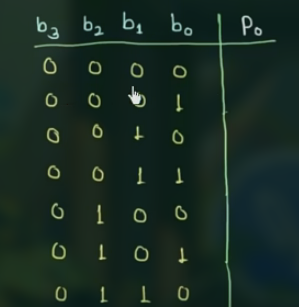 b₃ b₂ b₁ b₀ P₀
0 0 0 0
0 0 0 1
0 0 1 0
0 0 1 1
0 1 0 0
0 1 0 1
0 1 1 0